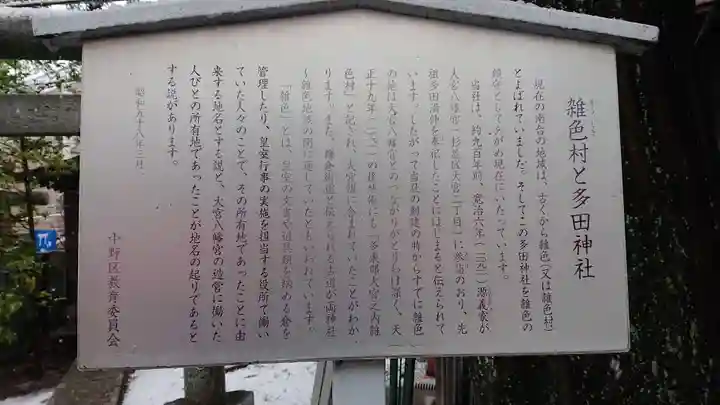 雑色村と多田神社
現在の南台の地域は、古くから雑色(又は雑色村)
とよばれていました。そしてこの多田神社を雑色の
鎮守としてあがめ現在にいたっています。
当社は、約九百年前、寛治六年(一〇九二)源義家が
大宮八幡宮(杉並区大宮二丁目)に参詣のおり、先
祖多田満仲を奉祀したことにはじまると伝えられて
います。したがって当社の創建の時からすでに雑色
の地は大宮八幡宮とのつながりがとりわけ深く、天
正十九年(一五九一)の
色村」と記され、大宮領に含まれていたことがわか
ります。また、鎌倉街道と伝えられる古道が両神社
と雑色地域の間に通じていたともいわれています。
「雑色」とは、皇室の文書や
管理したり、皇室行事の実施を担当する役所で働い
ていた人々のことで、その所有地であったことに由
来する地名とする説と、大宮八幡宮の造営に働いた
人びとの所有地であったことが地名の起りであると
する説があります。
昭和五十八年三月
中野区教育委員会